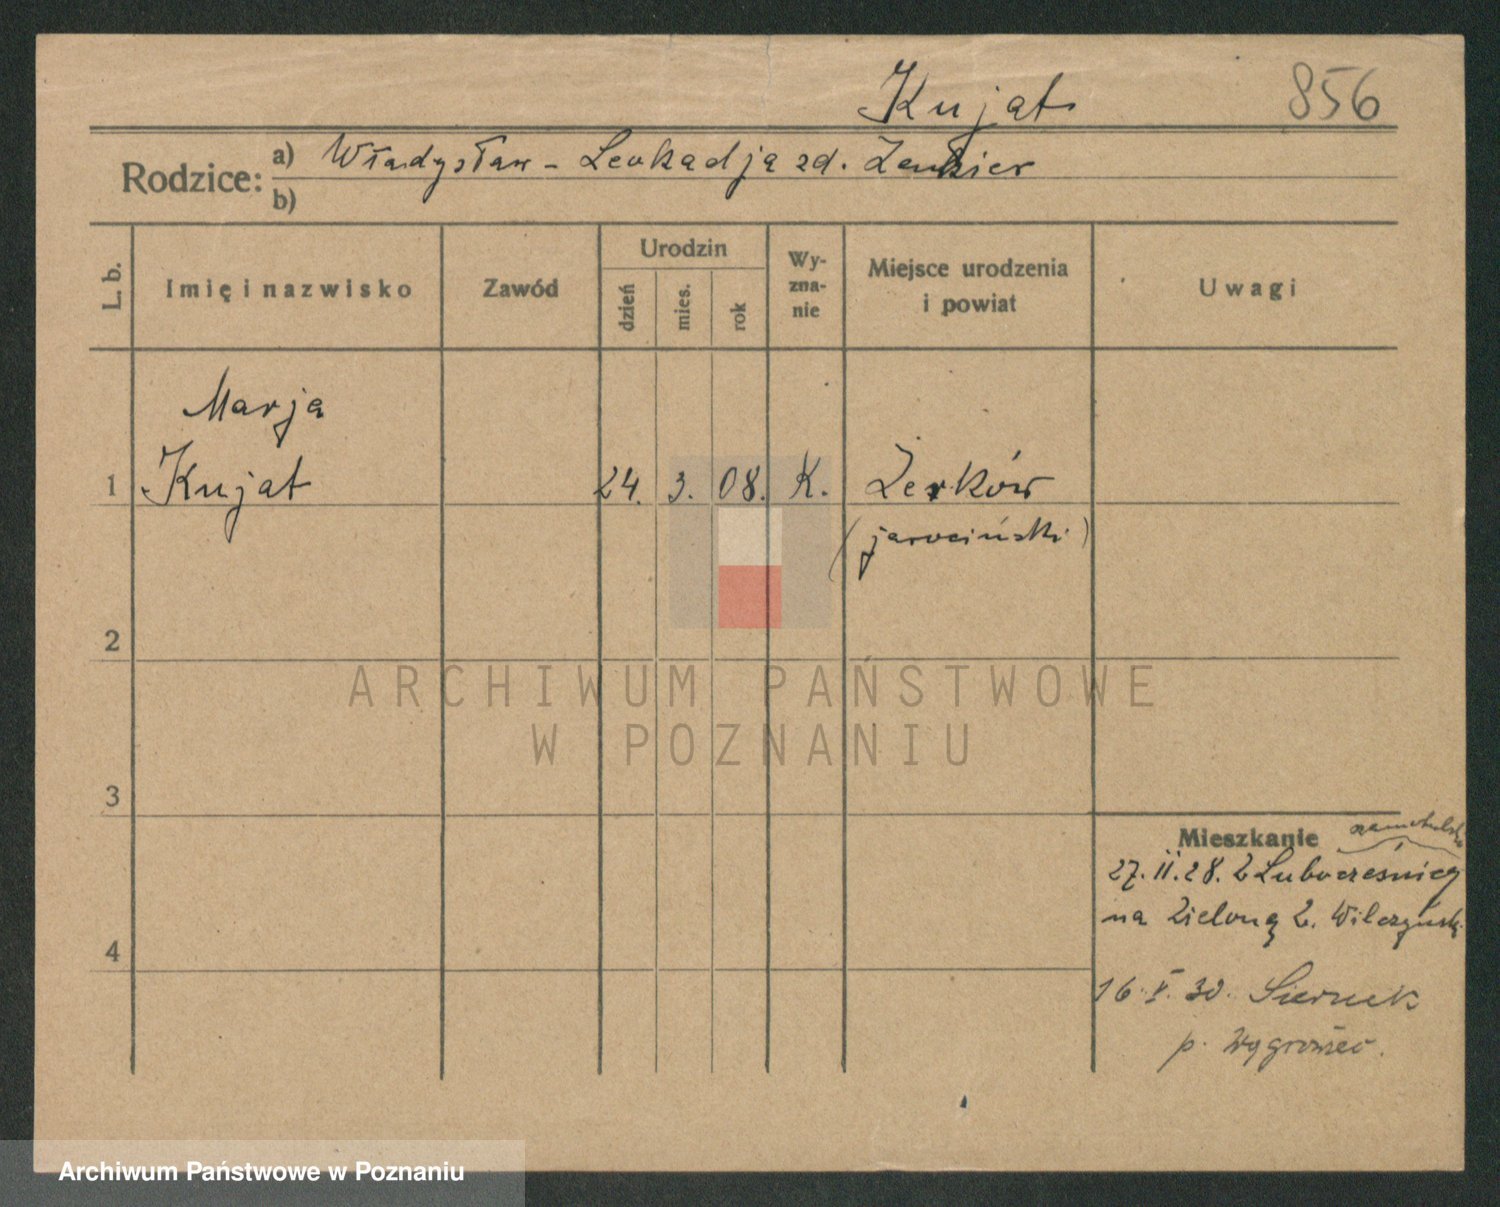 Kujat 856
Rodzice: a) Władysław - Leokadja zd.
b)
L. b. Imię i nazwisko Zawód Urodzin dzień mies. rok Wy-zna-nie Miejsce urodzenia i powiat Uwagi
Marja
1 Kujat 24. 3. 08. K. Żerków
(jarociński)
2
ARCHIWUM PAŃSTWOWE
W POZNANIU
3
Mieszkanie
27. II. 28. z
na Zieloną 2.
4
16. V. 30. Siernik
p. Wągrowiec.
Archiwum Państwowe w Poznaniu